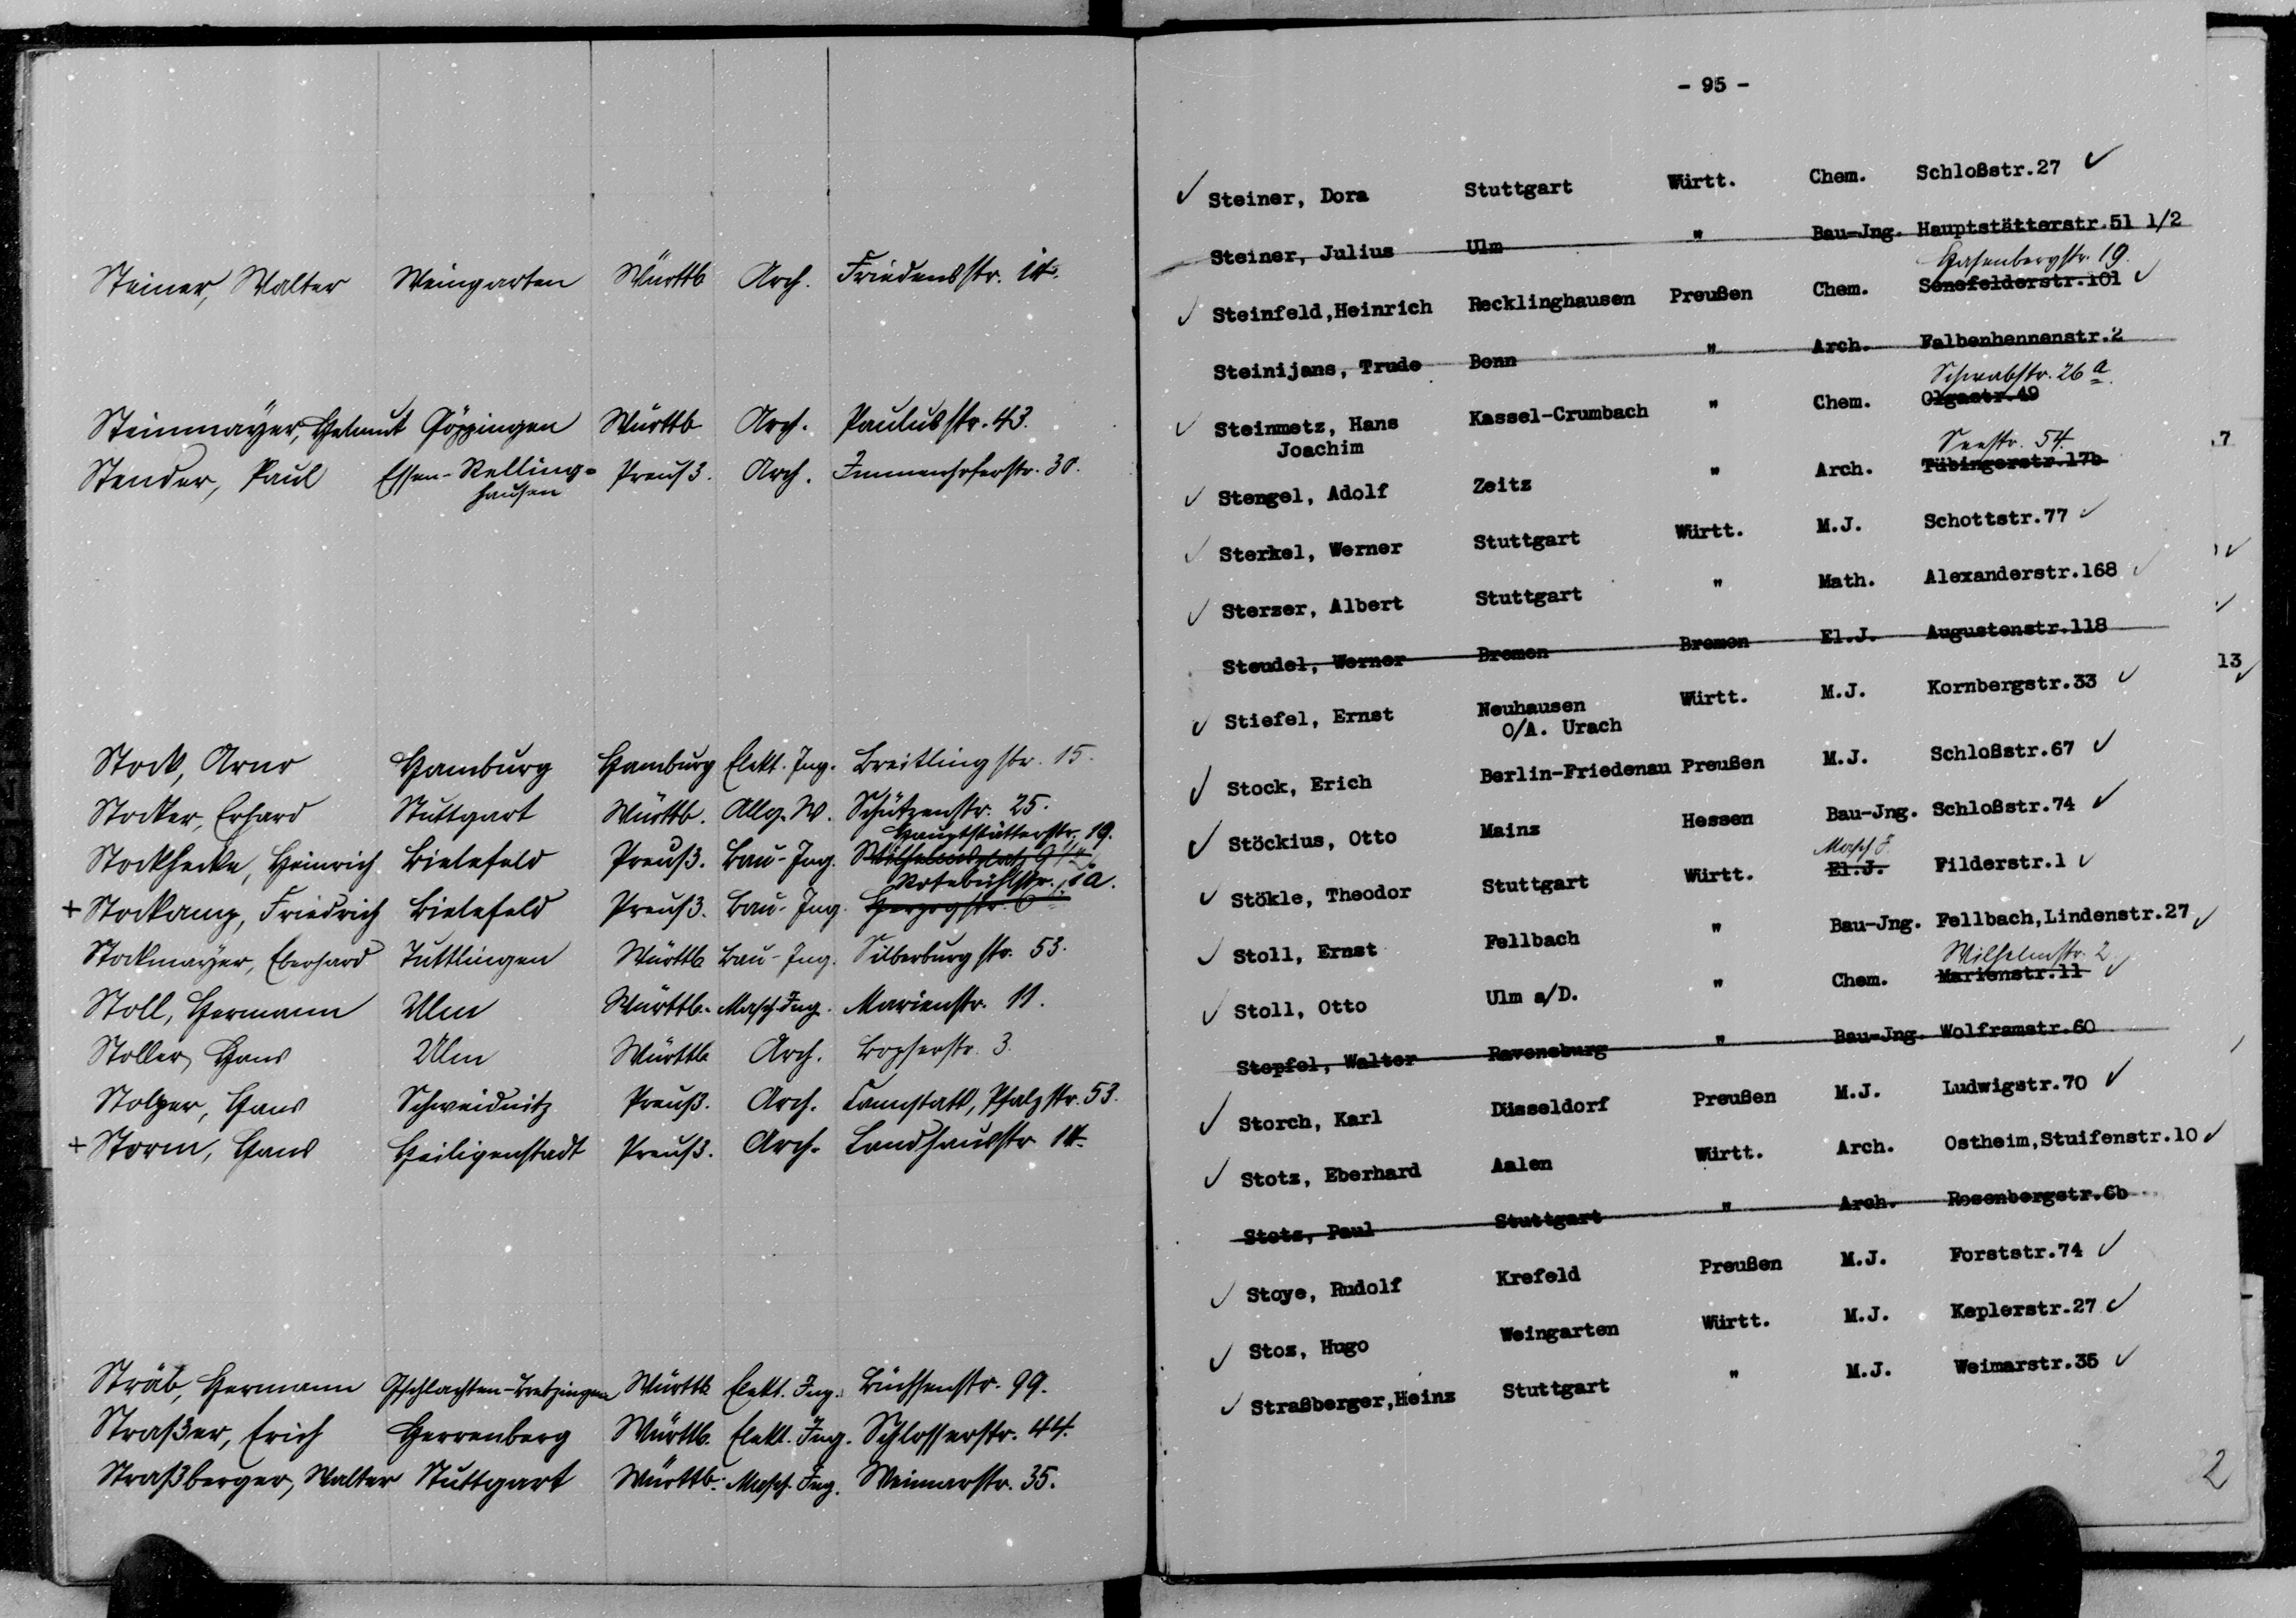 Steiner, Walter Weingarten Württb. Arch. Friedensstr. 14.
Steinmayer, Helmut Göppingen Württb. Arch. Paulusstr. 43.
Stender, Paul Essen-Relling= Preuß. Arch. Immenhoferstr. 30.
hausen
Stock, Arno Hamburg Hamburg Elekt. Ing. Breitlingstr. 15.
Stocker, Erhard Stuttgart Württb. Allg. W. Schützenstr. 25.
Hauptstätterstr. 19.
Stockhecke, Heinrich Bielefeld Preuß. Bau-Ing. Wilhelmsplatz
Rotebühlstr.
+ Stockamp, Friedrich Bielefeld Preuß. Bau-Ing. Herzogstr. 6
Stockmayer, Eberhard Tuttlingen Württb. Bau-Ing. Silberburgstr. 53.
Stoll, Hermann Ulm Württb. Masch. Ing. Marienstr. 11.
Stoller, Hans Ulm Württb. Arch. Bopserstr. 3.
Stolper, Hans Schweidnitz Preuß. Arch. Cannstatt, Pfalzstr. 53.
+ Storm, Hans Heiligenstadt Preuß. Arch. Landhausstr. 14.
Sträb, Hermann Württb. Elekt. Ing. Büchsenstr. 99.
Straßer, Erich Herrenberg Württb. Elekt. Ing. Schlosserstr. 44.
Straßberger, Walter Stuttgart Württb. Masch. Ing. Weimarstr. 35.
- 95 -
✓ Steiner, Dora Stuttgart Württ. Chem. Schloßstr.27 ✓
Steiner, Julius Ulm " Bau-Jng. Hauptstätterstr.51 1/2
Hasenbergstr. 19.
✓ Steinfeld,Heinrich Recklinghausen Preußen Chem. Senefelderstr.101 ✓
Steinijans, Trude Bonn " Arch. Falbenhennenstr.2
Schwabstr. 26 a.
✓ Steinmetz, Hans Kassel-Crumbach " Chem. Olgastr.49
Joachim
Seestr. 54.
✓ Stengel, Adolf Zeitz " Arch. Tübingerstr.17b
✓ Sterkel, Werner Stuttgart Württ. M.J. Schottstr.77 ✓
✓ Sterzer, Albert Stuttgart " Math. Alexanderstr.168 ✓
Steudel, Werner Bremen Bremen El.J. Augustenstr.118
✓ Stiefel, Ernst Neuhausen Württ. M.J. Kornbergstr.33 ✓
O/A. Urach
✓ Stock, Erich Berlin-Friedenau Preußen M.J. Schloßstr.67 ✓
✓ Stöckius, Otto Mainz Hessen Bau-Jng. Schloßstr.74 ✓
Masch J.
✓ Stökle, Theodor Stuttgart Württ. El.J. Filderstr.1 ✓
✓ Stoll, Ernst Fellbach " Bau-Jng. Fellbach,Lindenstr.27 ✓
Wilhelmstr. 2
✓ Stoll, Otto Ulm a/D. " Chem. Marienstr.11 ✓
Stopfel, Walter Ravensburg " Bau-Jng. Wolframstr.60
✓ Storch, Karl Düsseldorf Preußen M.J. Ludwigstr.70 ✓
✓ Stotz, Eberhard Aalen Württ. Arch. Ostheim,Stuifenstr.10 ✓
Stotz, Paul Stuttgart " Arch. Rosenbergstr.6b
✓ Stoye, Rudolf Krefeld Preußen M.J. Forststr.74 ✓
✓ Stoz, Hugo Weingarten Württ. M.J. Keplerstr.27 ✓
✓ Straßberger,Heinz Stuttgart " M.J. Weimarstr.35 ✓
7
✓
✓
13 ✓
2